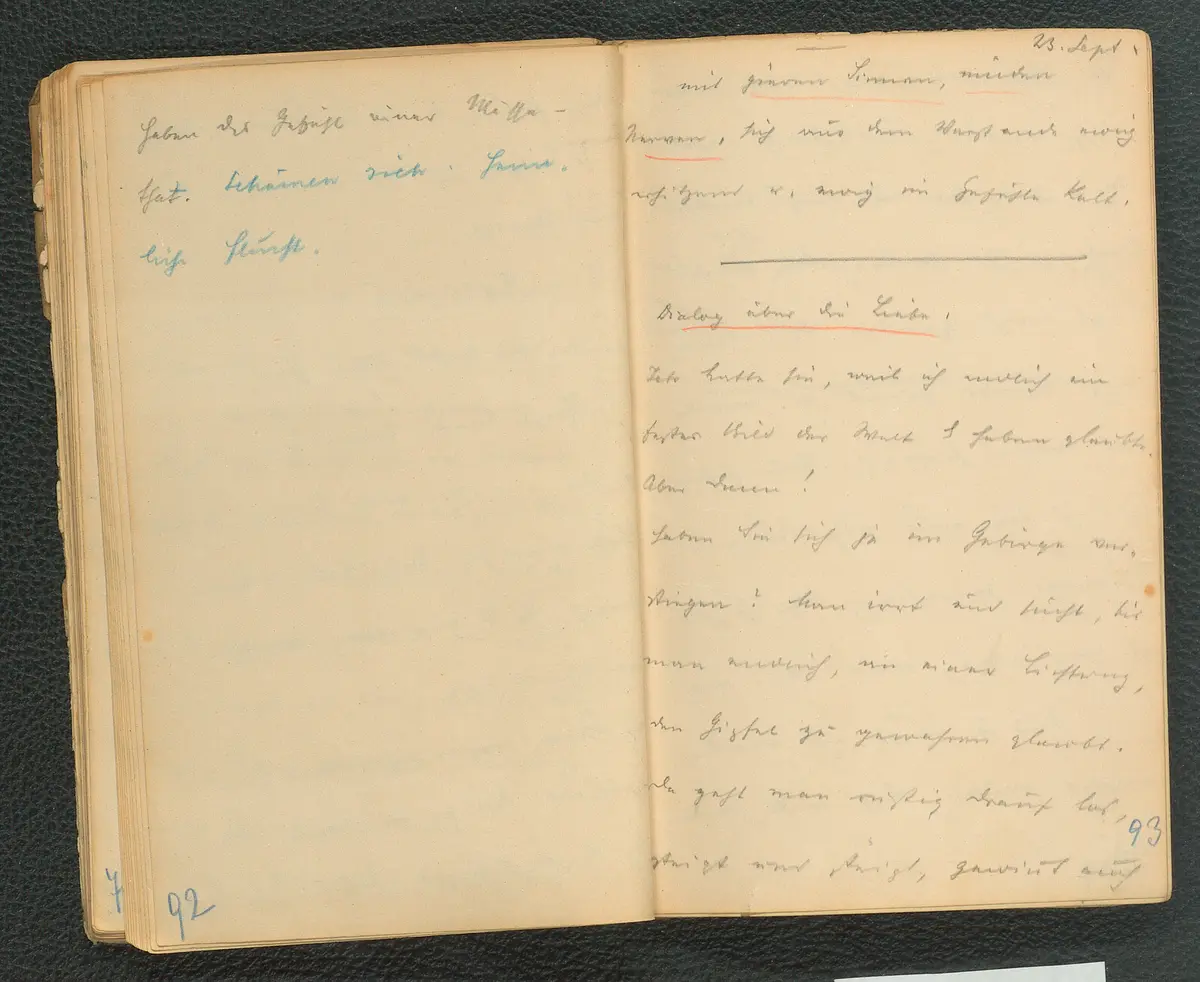 haben das Gefühl einer Misse-
that. Schämen sich. Heim-
liche Flucht.
92
7
23. Sept
mit gieren Sinnen, müden
Nerven, sich aus dem Verstande ewig
erhitzend u. ewig im Gefühle kalt.
Dialog über die Liebe.
hatte sie, weil ich endlich ein
festes Bild der Welt z haben glaubte.
Aber dann!
Haben Sie sich je im Gebirge ver-
stiegen? Man irrt und sucht, bis
man endlich, an einer Lichtung,
den Gipfel zu gewahren glaubt.
Da geht man rüstig drauf los,
steigt und steigt, gewinnt auch
93